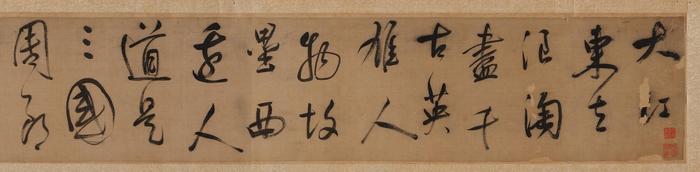 大江
東去
浪淘
盡千
古英
雄人
物故
壘西
邊人
道是
三國
周郎